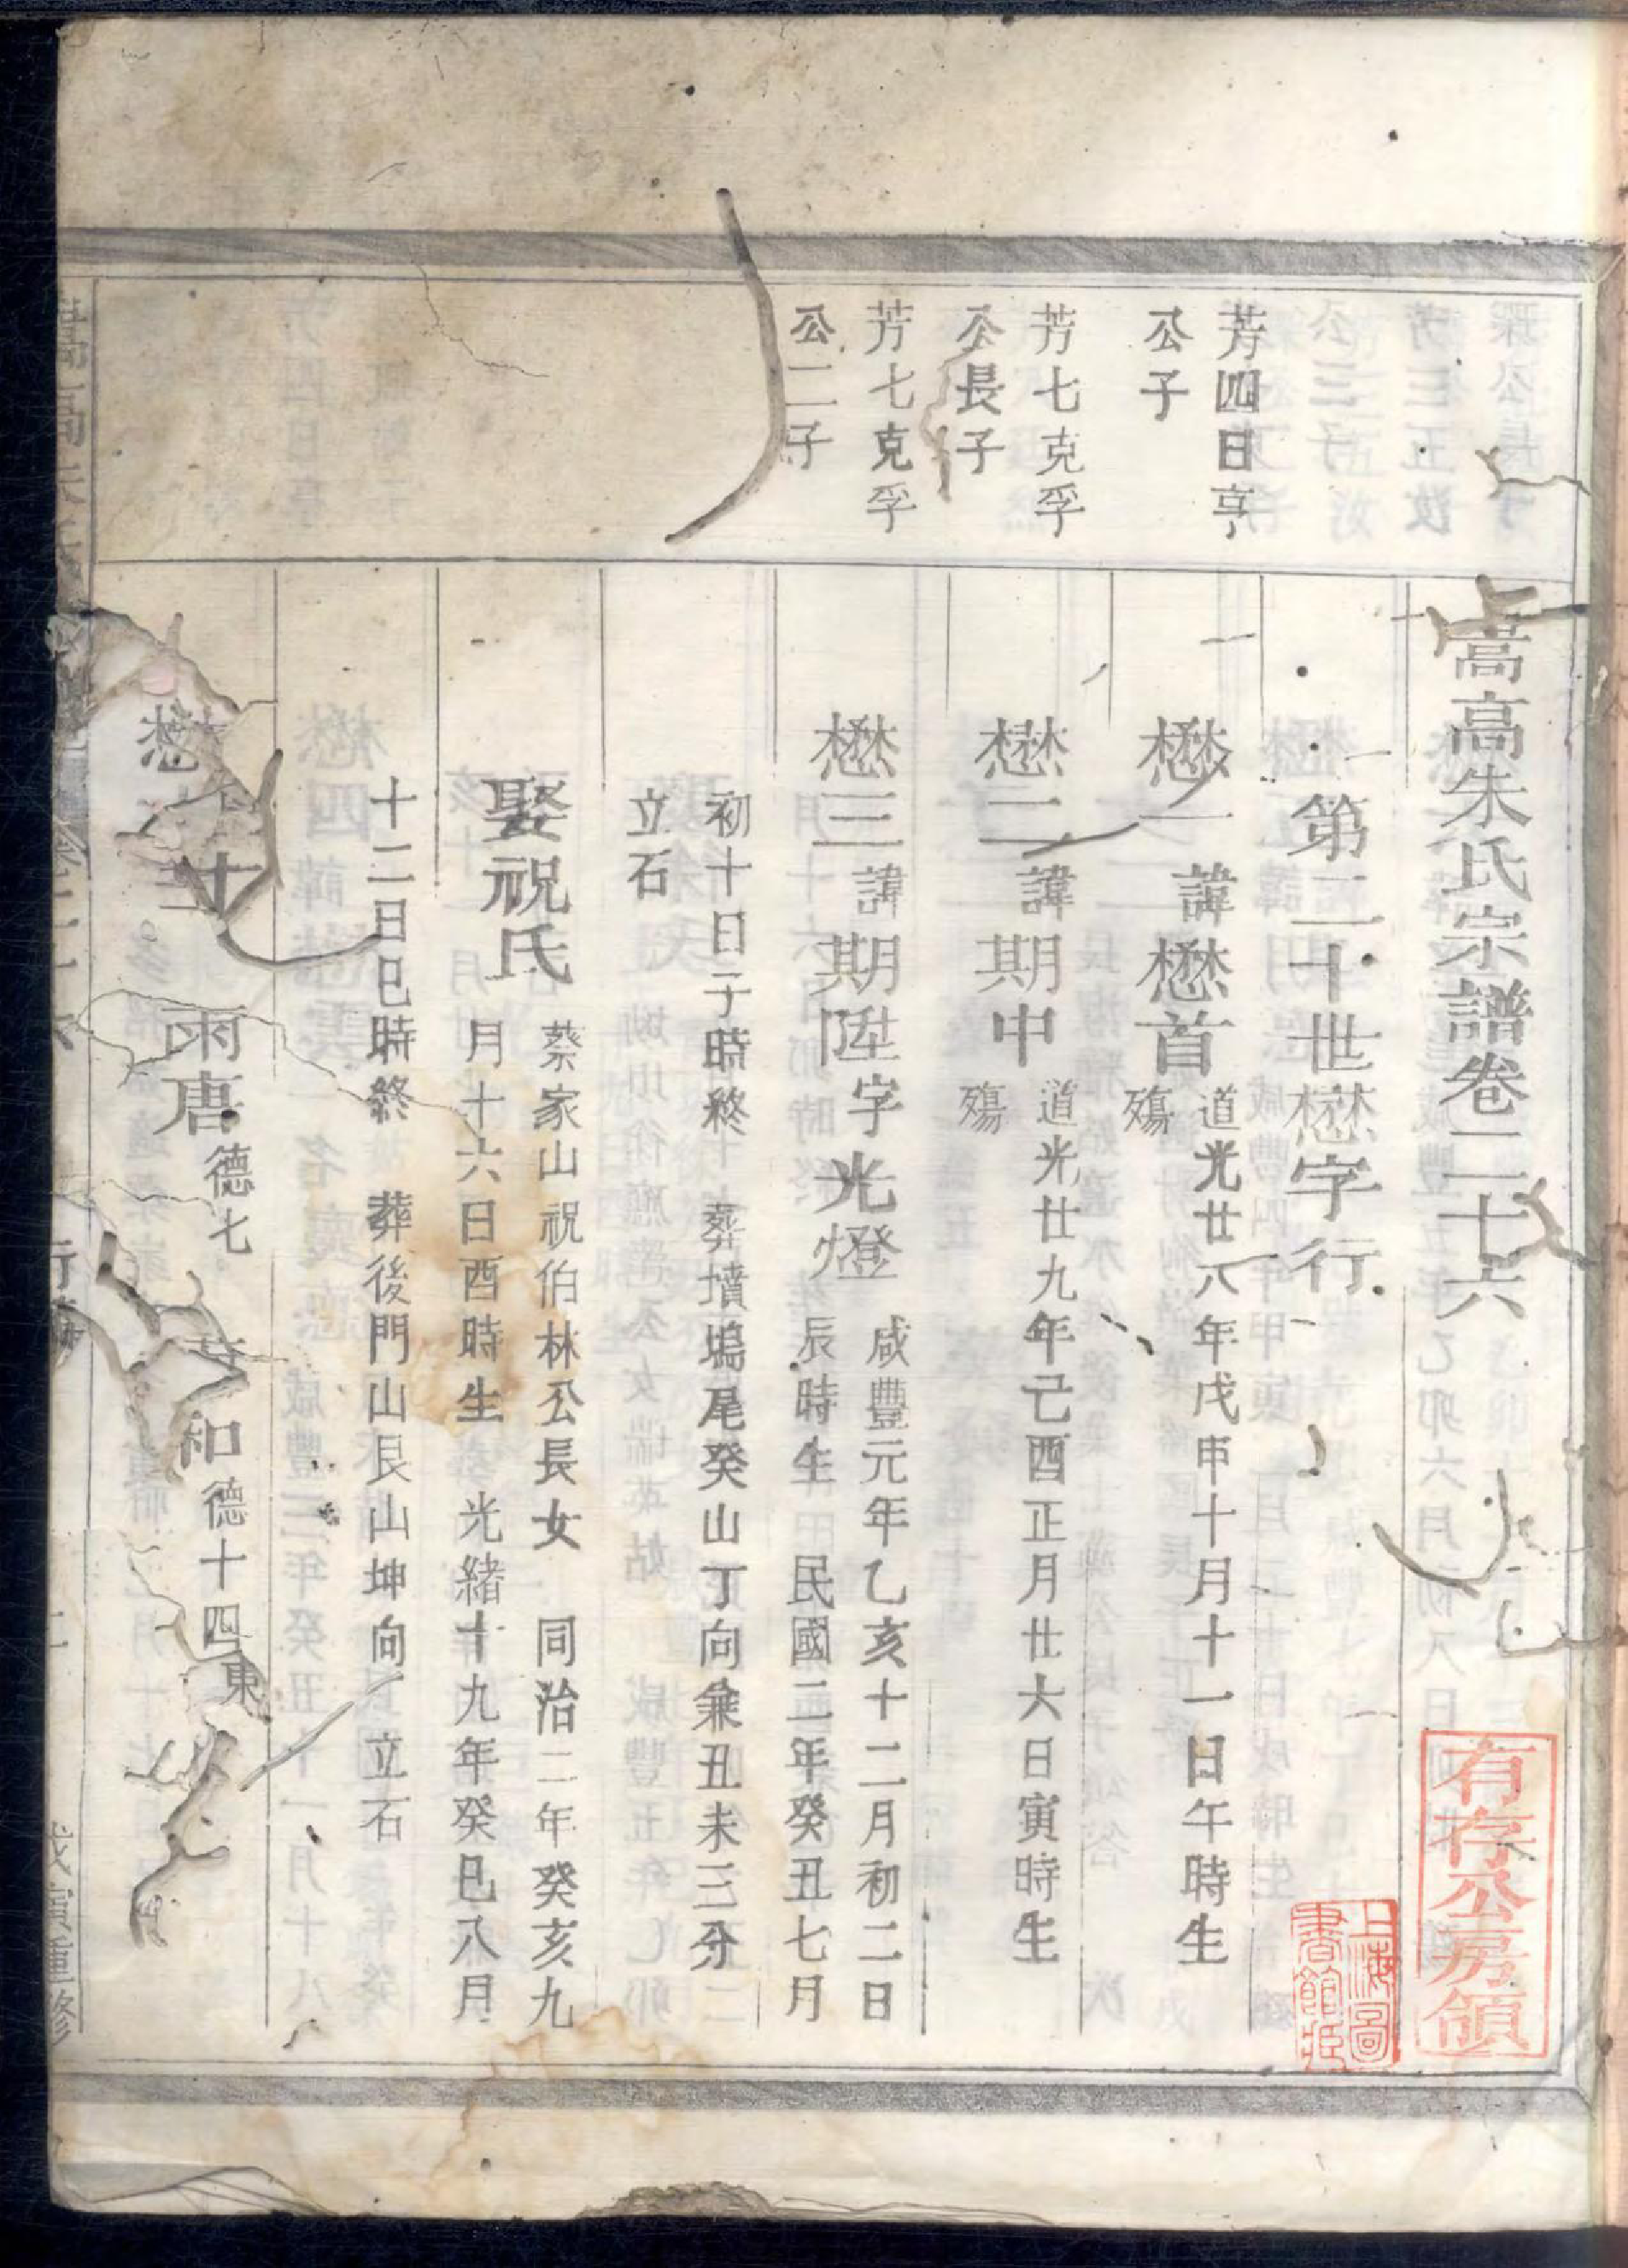 嵩高朱氏宗譜卷二十六
有存公房領
上海圖
書館藏
第二十世懋字行
芳四日亨
公子
懋一諱懋首
道光廿八年戊申十月十一日午時生
殤
芳七克孚
公長子
懋二諱期中
道光廿九年己酉正月廿六日寅時生
殤
芳七克孚
公二子
懋三諱期陞字光燈
咸豐元年乙亥十二月初二日
辰時生 民國二年癸丑七月
初十日子時終 葬墳塢尾癸山丁向兼丑未三分
立石
娶祝氏
蔡家山祝伯林公長女 同治二年癸亥九
月十六日酉時生 光緒十九年癸巳八月
十二日巳時終 葬後門山艮山坤向 立石
子 雨唐德七 和德十四
懋
戊寅重修